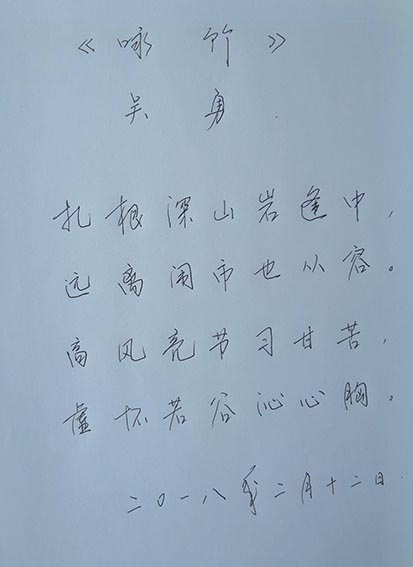 《咏竹》
吴勇.
扎根深山岩逢中,
远离闹市也从容。
高风亮节习甘苦,
虚怀若谷沁心胸。
二〇一八年二月十二日